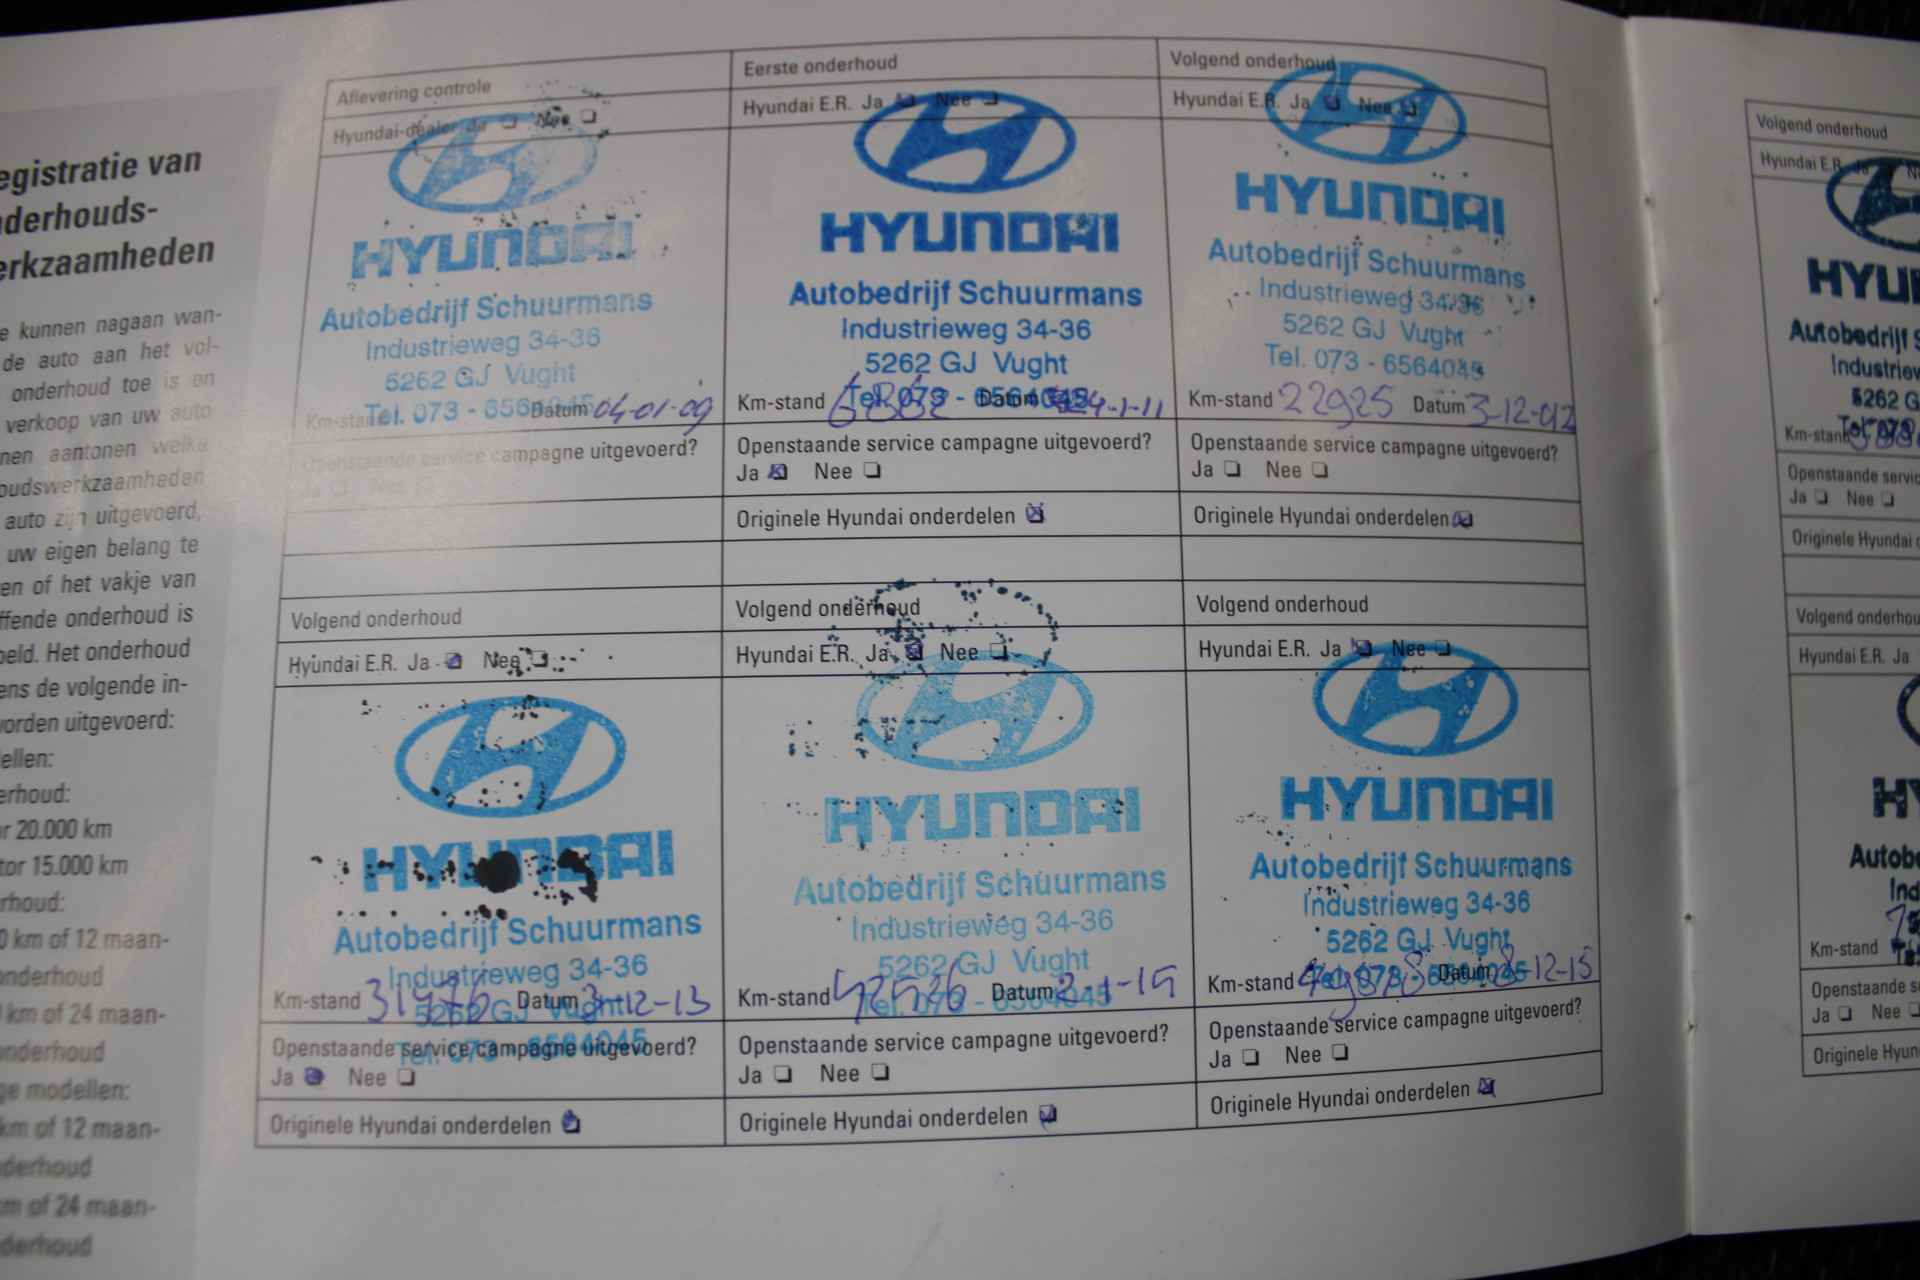 egistratie van
nderhouds-
erkzaamheden
e kunnen nagaan wan-
de auto aan het vol-
onderhoud toe is en
verkoop van uw auto
nen aantonen welke
oudswerkzaamheden
auto zijn uitgevoerd,
uw eigen belang te
en of het vakje van
ffende onderhoud is
eld. Het onderhoud
ens de volgende in-
orden uitgevoerd:
ellen:
erhoud:
r 20.000 km
tor 15.000 km
rhoud:
0 km of 12 maan-
onderhoud
km of 24 maan-
onderhoud
ge modellen:
km of 12 maan-
nderhoud
km of 24 maan-
derhoud
Aflevering controle
Hyundai-dealer Ja Nee
HYUNDAI
Autobedrijf Schuurmans
Industrieweg 34-36
5262 GJ Vught
Tel. 073 - 6564045
Km-stand Datum 04-01-09
Openstaande service campagne uitgevoerd?
Ja Nee
Eerste onderhoud
Hyundai E.R. Ja Nee
HYUNDAI
Autobedrijf Schuurmans
Industrieweg 34-36
5262 GJ Vught
Tel. 073 - 6564045
Km-stand Datum 24-1-11
Openstaande service campagne uitgevoerd?
Ja Nee
Originele Hyundai onderdelen
Volgend onderhoud
Hyundai E.R. Ja Nee
HYUNDAI
Autobedrijf Schuurmans
Industrieweg 34-36
5262 GJ Vught
Tel. 073 - 6564045
Km-stand 22925 Datum 3-12-012
Openstaande service campagne uitgevoerd?
Ja Nee
Originele Hyundai onderdelen
Volgend onderhoud
Hyundai E.R. Ja Nee
HYUNDAI
Autobedrijf Schuurmans
Industrieweg 34-36
5262 GJ Vught
Tel. 073 - 6564045
Km-stand Datum 3-12-13
Openstaande service campagne uitgevoerd?
Ja Nee
Originele Hyundai onderdelen
Volgend onderhoud
Hyundai E.R. Ja Nee
HYUNDAI
Autobedrijf Schuurmans
Industrieweg 34-36
5262 GJ Vught
Tel. 073 - 6564045
Km-stand Datum 2-1-15
Openstaande service campagne uitgevoerd?
Ja Nee
Originele Hyundai onderdelen
Volgend onderhoud
Hyundai E.R. Ja Nee
HYUNDAI
Autobedrijf Schuurmans
Industrieweg 34-36
5262 GJ Vught
Tel. 073 - 6564045
Km-stand Datum 8-12-15
Openstaande service campagne uitgevoerd?
Ja Nee
Originele Hyundai onderdelen
Volgend onderhoud
Hyundai E.R. Ja N
HYU
Autobedrijf S
Industriew
5262 G
Tel. 073
Km-stand
Openstaande servic
Ja Nee
Originele Hyundai o
Volgend onderhou
Hyundai E.R. Ja
HY
Autob
Ind
Km-stand
Openstaande s
Ja Nee
Originele Hyun